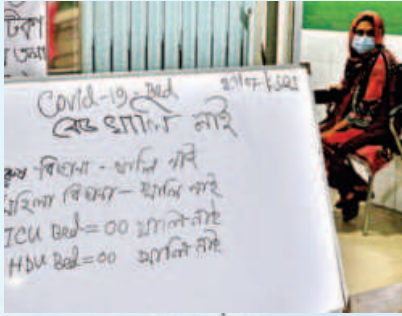 টিকা
Covid-19-Bed
বেড খালি নাই
বিছানা - খালি নাই
মহিলা বিছানা - খালি নাই
ICU Bed=00 খালি নাই
HDU Bed=00 খালি নাই